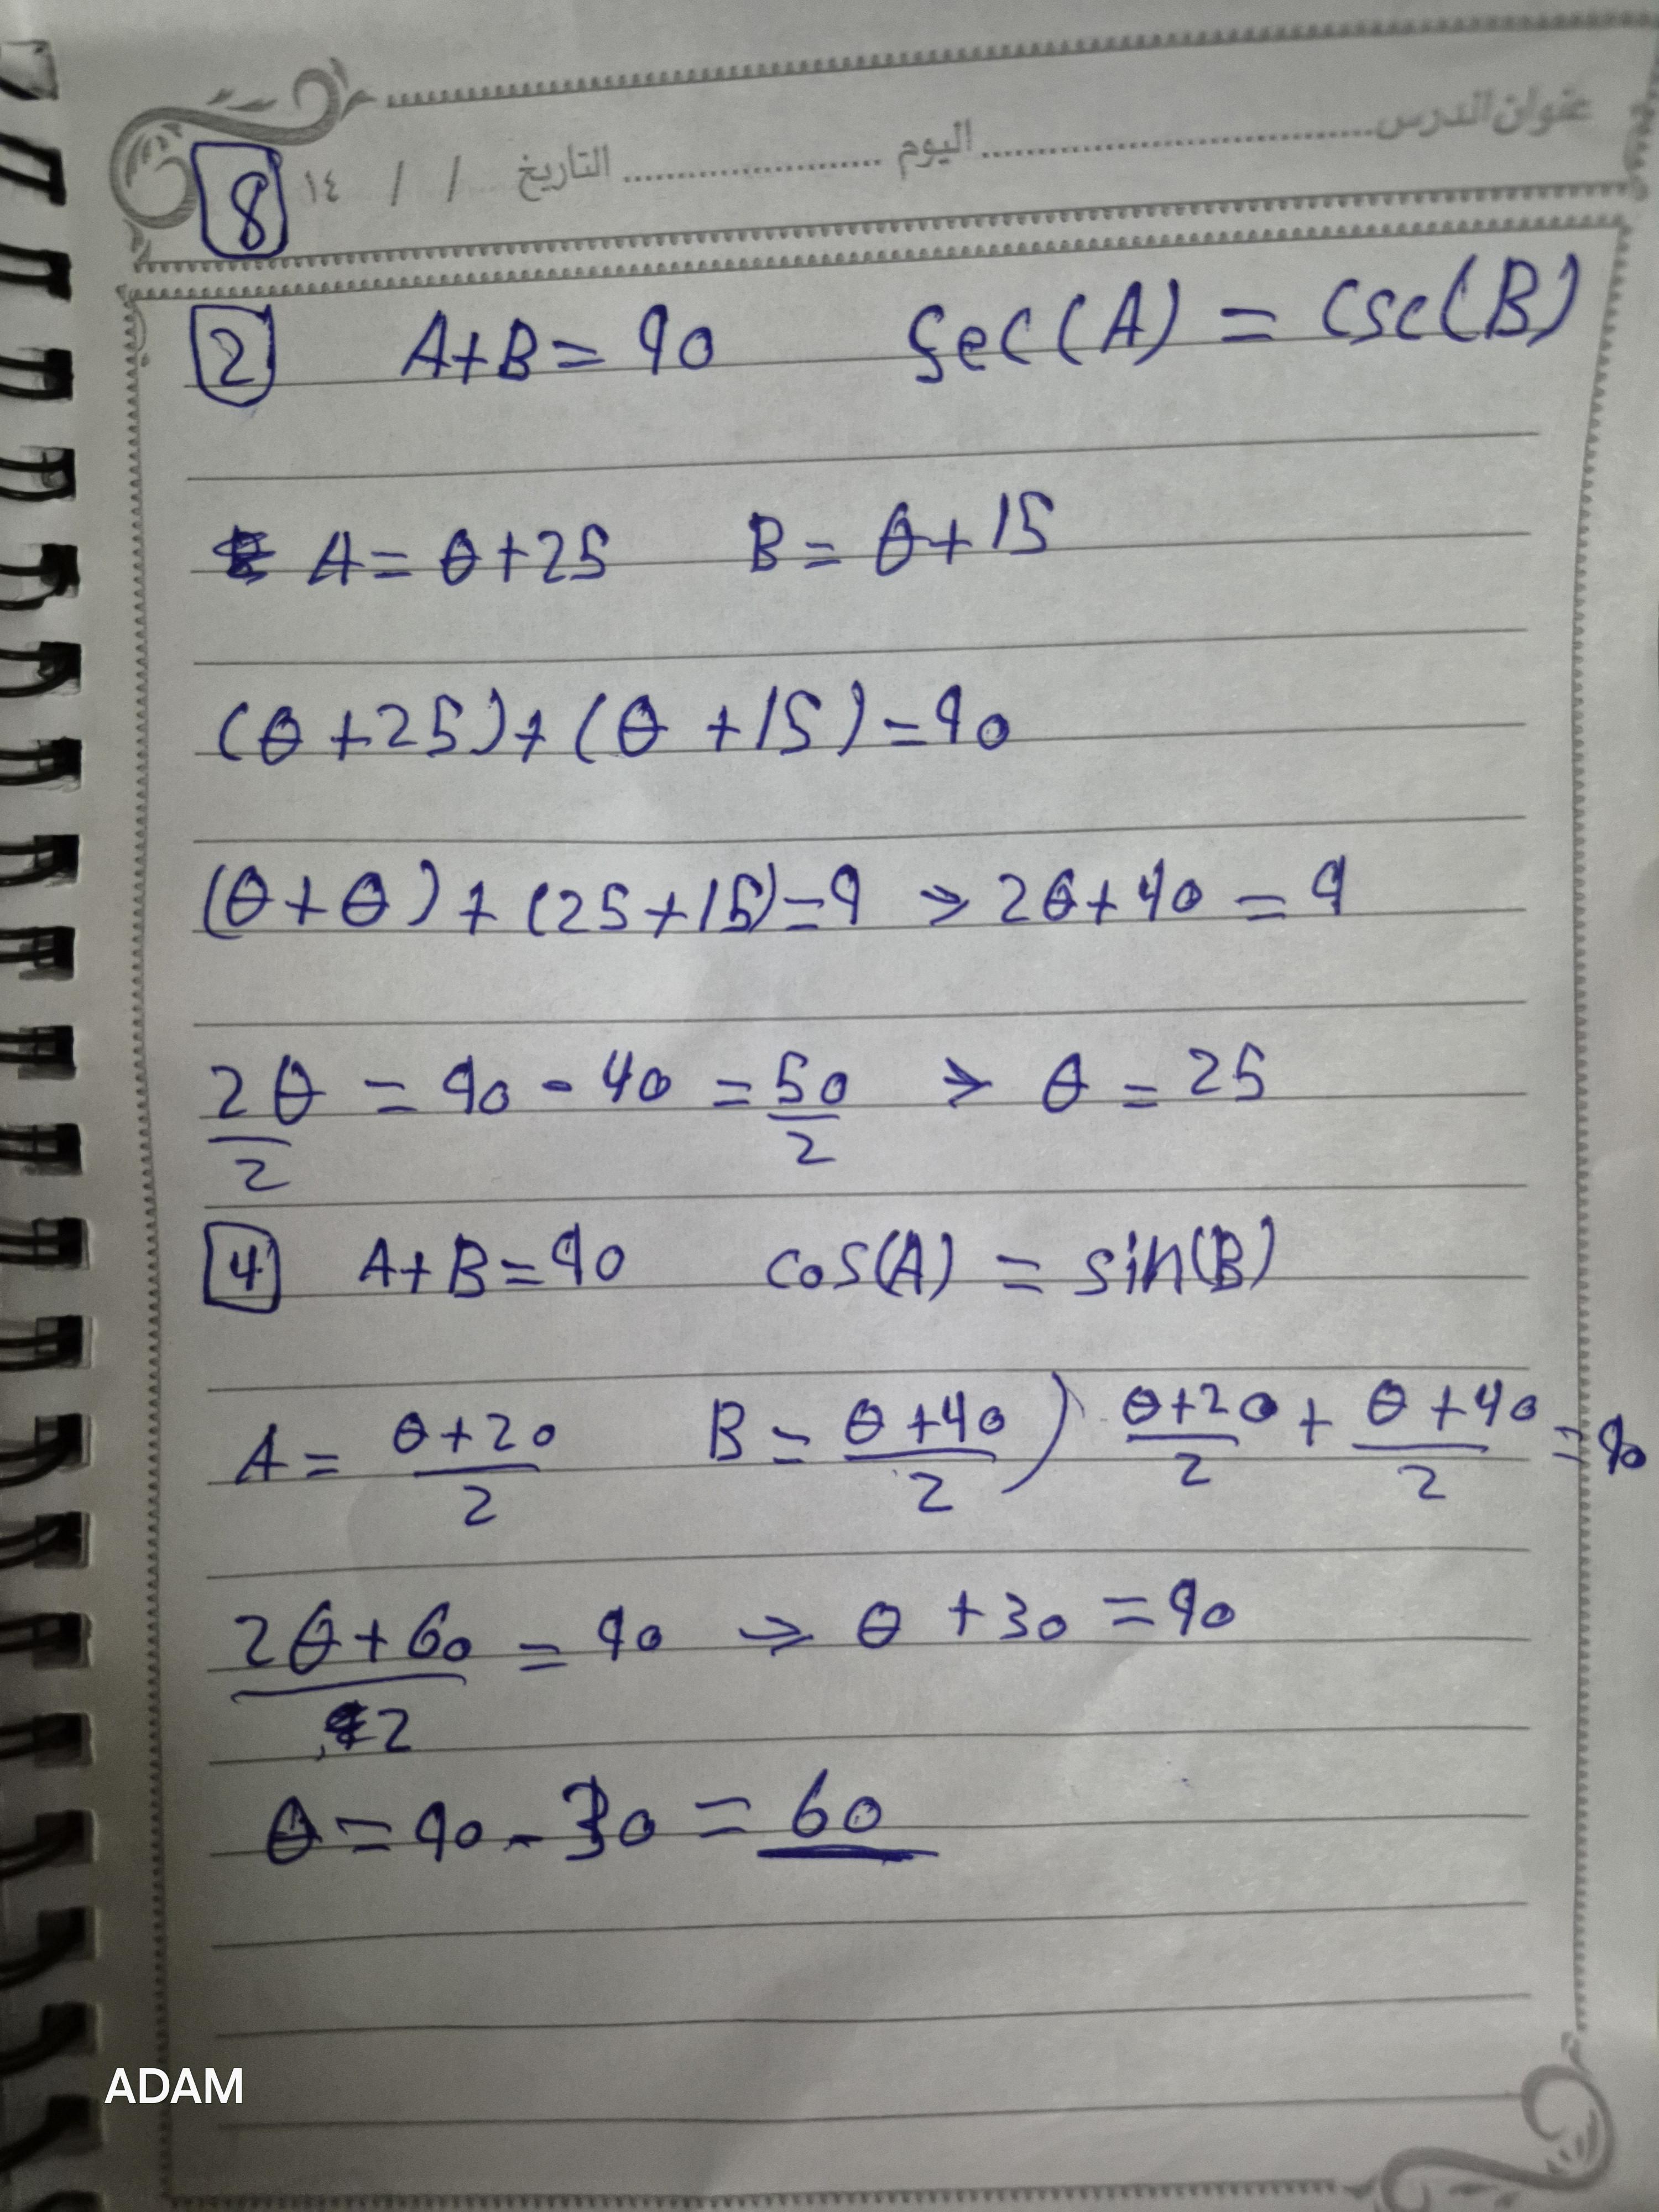 عنوان الدرس ........................ اليوم ................ التاريخ / / ١٤
8
2 A+B=90 sec(A) = csc(B)
A = θ+25 B = θ+15
(θ+25)+(θ+15)=90
(θ+θ)+(25+15)=9 → 2θ+40=9
2θ/2 = 90-40 = 50/2 → θ = 25
4 A+B=90 cos(A) = sin(B)
A = θ+20/2 B = θ+40/2 ) θ+20/2 + θ+40/2 = 90
2θ+60/2 = 90 → θ+30=90
θ = 90-30 = 60
ADAM